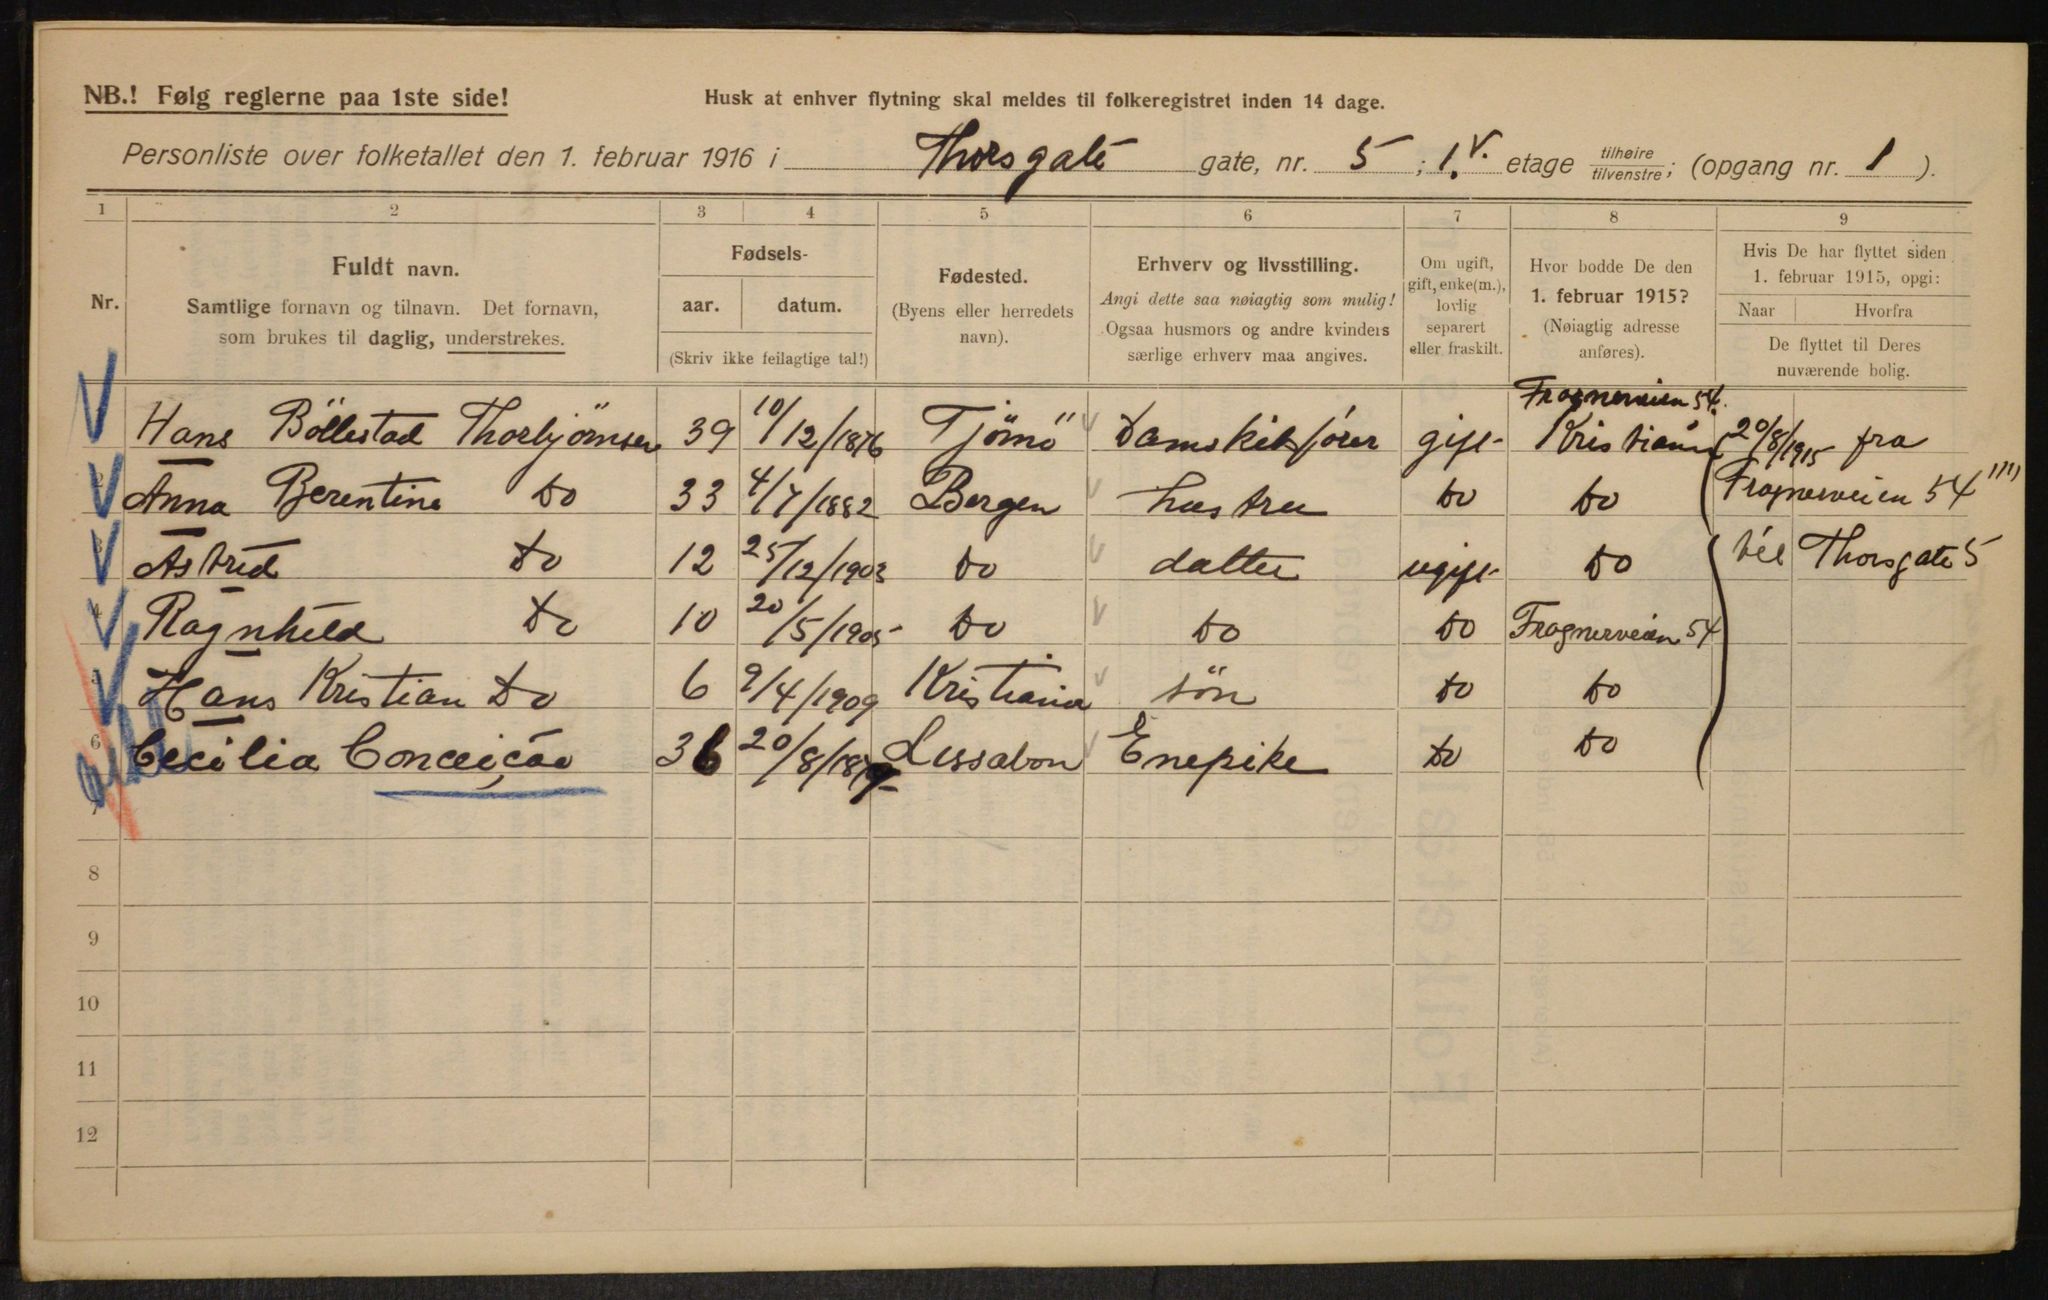 NB.! Følg reglerne paa 1ste side!
Husk at enhver flytning skal meldes til folkeregistret inden 14 dage.
Personliste over folketallet den 1. februar 1916 i Thorsgate gate, nr. 5 ; 1. v. etage tilhøire/tilvenstre; (opgang nr. 1 ).
1 2 3 4 5 6 7 8 9
Nr.
Fuldt navn.
Samtlige fornavn og tilnavn. Det fornavn,
som brukes til daglig, understrekes.
Fødsels-
aar. datum.
(Skriv ikke feilagtige tal!)
Fødested.
(Byens eller herredets
navn).
Erhverv og livsstilling.
Angi dette saa nøiagtig som mulig!
Ogsaa husmors og andre kvinders
særlige erhverv maa angives.
Om ugift,
gift, enke(m.),
lovlig
separert
eller fraskilt.
Hvor bodde De den
1. februar 1915?
(Nøiagtig adresse
anføres).
Hvis De har flyttet siden
1. februar 1915, opgi:
Naar Hvorfra
De flyttet til Deres
nuværende bolig.
Frognerveien 54.
Hans Böllestad Thorbjörnsen 39 10/12/1876 Tjömö Damskibsfører gift Kristiania 20/8/1915 fra
2 Anna Berentine Do 33 4/7/1882 Bergen hustru Do Do Frognerveien 54
3 Astrid Do 12 25/12/1903 Do datter ugift Do til Thorsgate 5
4 Ragnhild Do 10 20/5/1905 Do Do Do Frognerveien 54
5 Hans Kristian Do 6 9/4/1909 Kristiania sön Do Do
6 Cecilia Conceição 36 20/8/1879 Lissabon Enepike Do Do
7
8
9
10
11
12